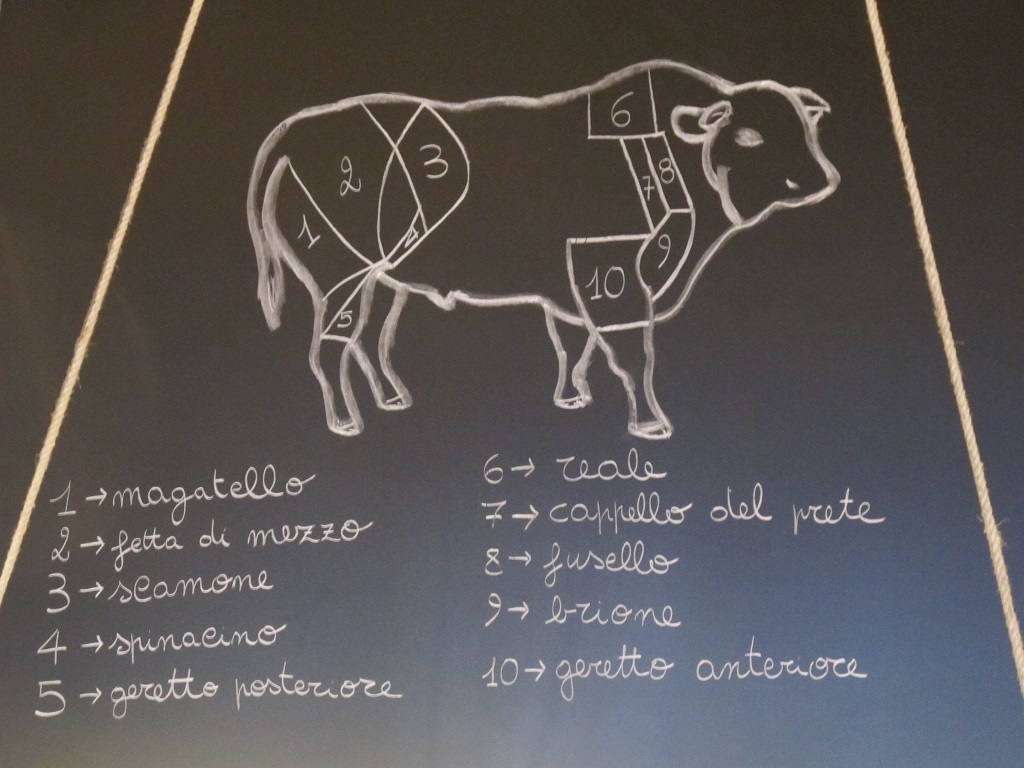 1
2
3
4
5
6
7
8
9
10
1 → magatello
2 → fetta di mezzo
3 → scamone
4 → spinacino
5 → geretto posteriore
6 → reale
7 → cappello del prete
8 → fusello
9 → brione
10 → geretto anteriore